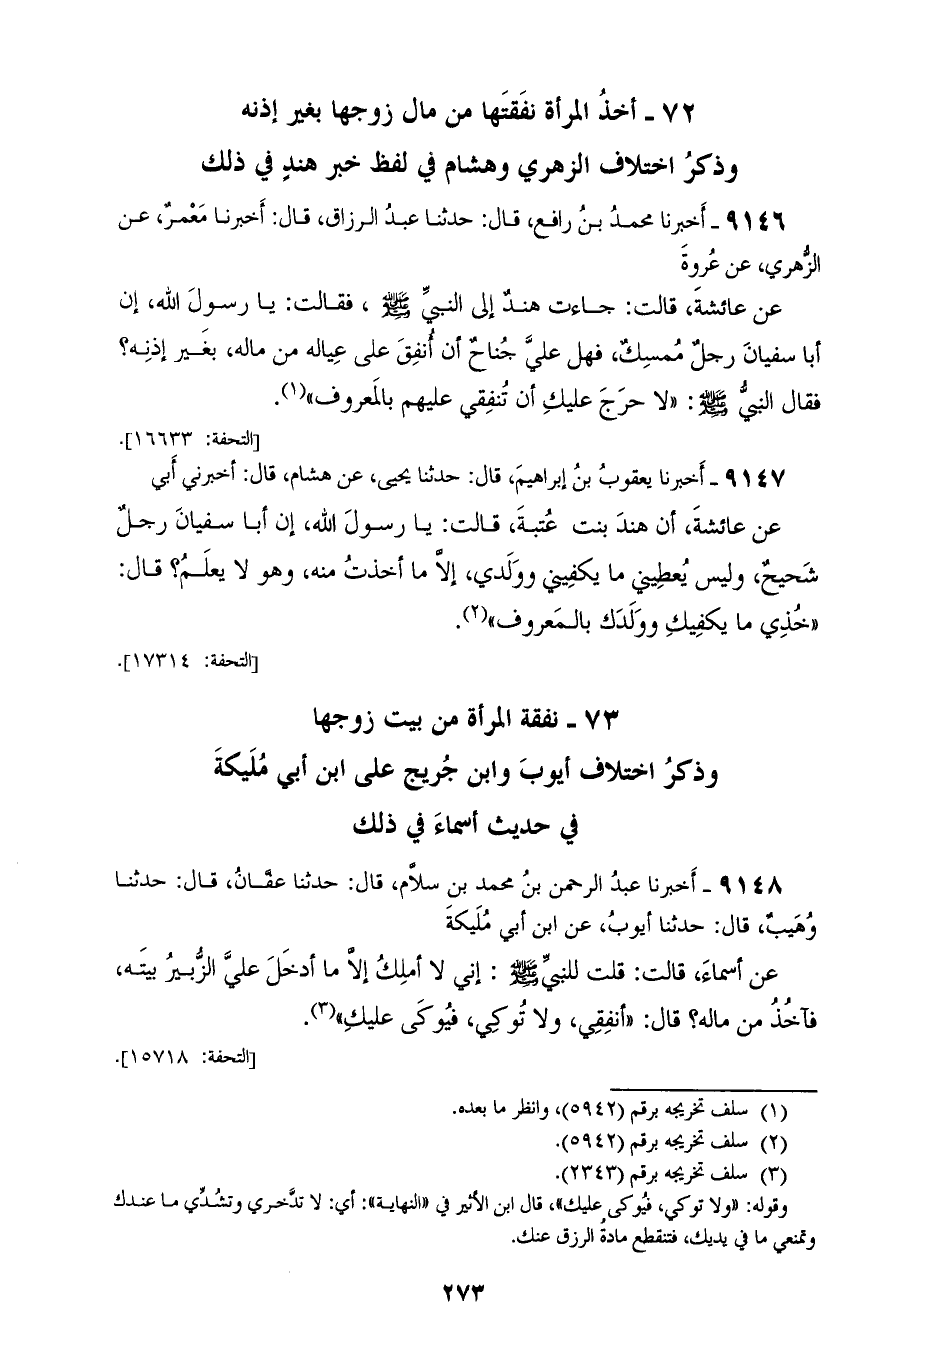 ٧٢ ـ أخذُ المرأة نفَقتَها من مال زوجها بغير إذنه
وذكرُ اختلاف الزهري وهشام في لفظ خبر هندٍ في ذلك
٩١٤٦ ـ أَخبرنا محمدُ بـنُ رافع، قـال: حدثنـا عبدُ الـرزاق، قـال: أَخبرنـا مَعْمرٌ، عـن
الزُّهري، عن عُروةَ
عن عائشةَ، قالت: جـاءت هنـدٌ إلى النبيِّ ﷺ ، فقـالت: يـا رسـولَ الله، إن
أبا سفيانَ رجلٌ مُمسِكٌ، فهل عليَّ جُناحٌ أن أُنفِقَ على عِياله من ماله، بغَـير إذنِـه؟
فقال النبيُّ ﷺ : «لا حرَجَ عليكِ أن تُنفِقي عليهم بالمَعروف»(١).
[التحفة: ١٦٦٣٣].
٩١٤٧ ـ أَخبرنا يعقوبُ بنُ إبراهيمَ، قال: حدثنا يحيى، عن هشام، قال: أخبرني أَبي
عن عائشةَ، أن هندَ بنت عُتبـةَ، قـالت: يـا رسـولَ الله، إن أبـا سـفيانَ رجـلٌ
شَحيحٌ، وليس يُعطِيني ما يكفِيني ووَلَدي، إلاَّ ما أخذتُ منه، وهو لا يعلَـمُ؟ قـال:
«خُذِي ما يكفيكِ ووَلَدَك بالـمَعروف»(٢).
[التحفة: ١٧٣١٤].
٧٣ ـ نفقة المرأة من بيت زوجها
وذكرُ اختلاف أيوبَ وابن جُريج على ابن أبي مُلَيكةَ
في حديث أسماءَ في ذلك
٩١٤٨ ـ أَخبرنا عبدُ الرحمن بنُ محمد بن سلاَّم، قال: حدثنا عفَّـانُ، قـال: حدثنـا
وُهَيبٌ، قال: حدثنا أيوبُ، عن ابن أبي مُلَيكةَ
عن أسماءَ، قالت: قلت للنبيِّ ﷺ : إني لا أملِكُ إلاَّ ما أدخَلَ عليَّ الزُّبيرُ بيتَـه،
فآخُذُ من ماله؟ قال: «أنفِقِي، ولا تُوكِي، فيُوكَى عليكِ»(٣).
[التحفة: ١٥٧١٨].
(١) سلف تخريجه برقم (٥٩٤٢)، وانظر ما بعده.
(٢) سلف تخريجه برقم (٥٩٤٢).
(٣) سلف تخريجه برقم (٢٣٤٣).
وقوله: «ولا توكي، فيُوكى عليك»، قال ابن الأثير في «النهاية»: أي: لا تدَّخري وتشُدِّي مـا عنـدك
وتمنعي ما في يديك، فتنقطع مادةُ الرزق عنك.
٢٧٣